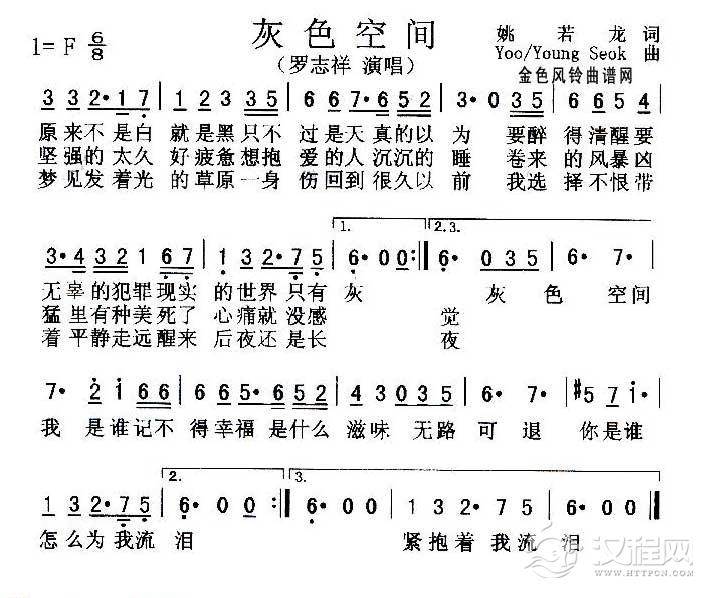 灰色空间
1=F 6/8
(罗志祥 演唱)
姚若龙 词
Yoo/Young Seok 曲
金色风铃曲谱网
3 3 2·1 7 | 1 2 3 3 5 | 6 6 7·6 5 2 | 3·0 3 5 | 6 6 5 4
原来不是白 就是黑只不 过是天真的以 为 要醉 得清醒要
坚强的太久 好疲惫想抱 爱的人沉沉的 睡 卷来 的风暴凶
梦见发着光 的草原一身 伤回到很久以 前 我选 择不恨带
1. 2.3.
3·4 3 2 1 6 7 | 1 3 2·7 5 | 6·0 0 :| 6·0 3 5 | 6·7·
无辜的犯罪现实 的世界只有 灰 灰色 空间
猛里有种美死了 心痛就没感 觉
着平静走远醒来 后夜还是长 夜
7·2 i 6 6 | 6 6 5·6 5 2 | 4 3 0 3 5 | 6·7· | #5 7 i·
我 是谁记不 得幸福是什么 滋味 无路 可退 你是谁
2. 3.
1 3 2·7 5 | 6·0 0 :| 6·0 0 | 1 3 2·7 5 | 6·0 0
怎么为我流 泪 紧抱着我流 泪
汉程网
WWW.HTTPCN.COM